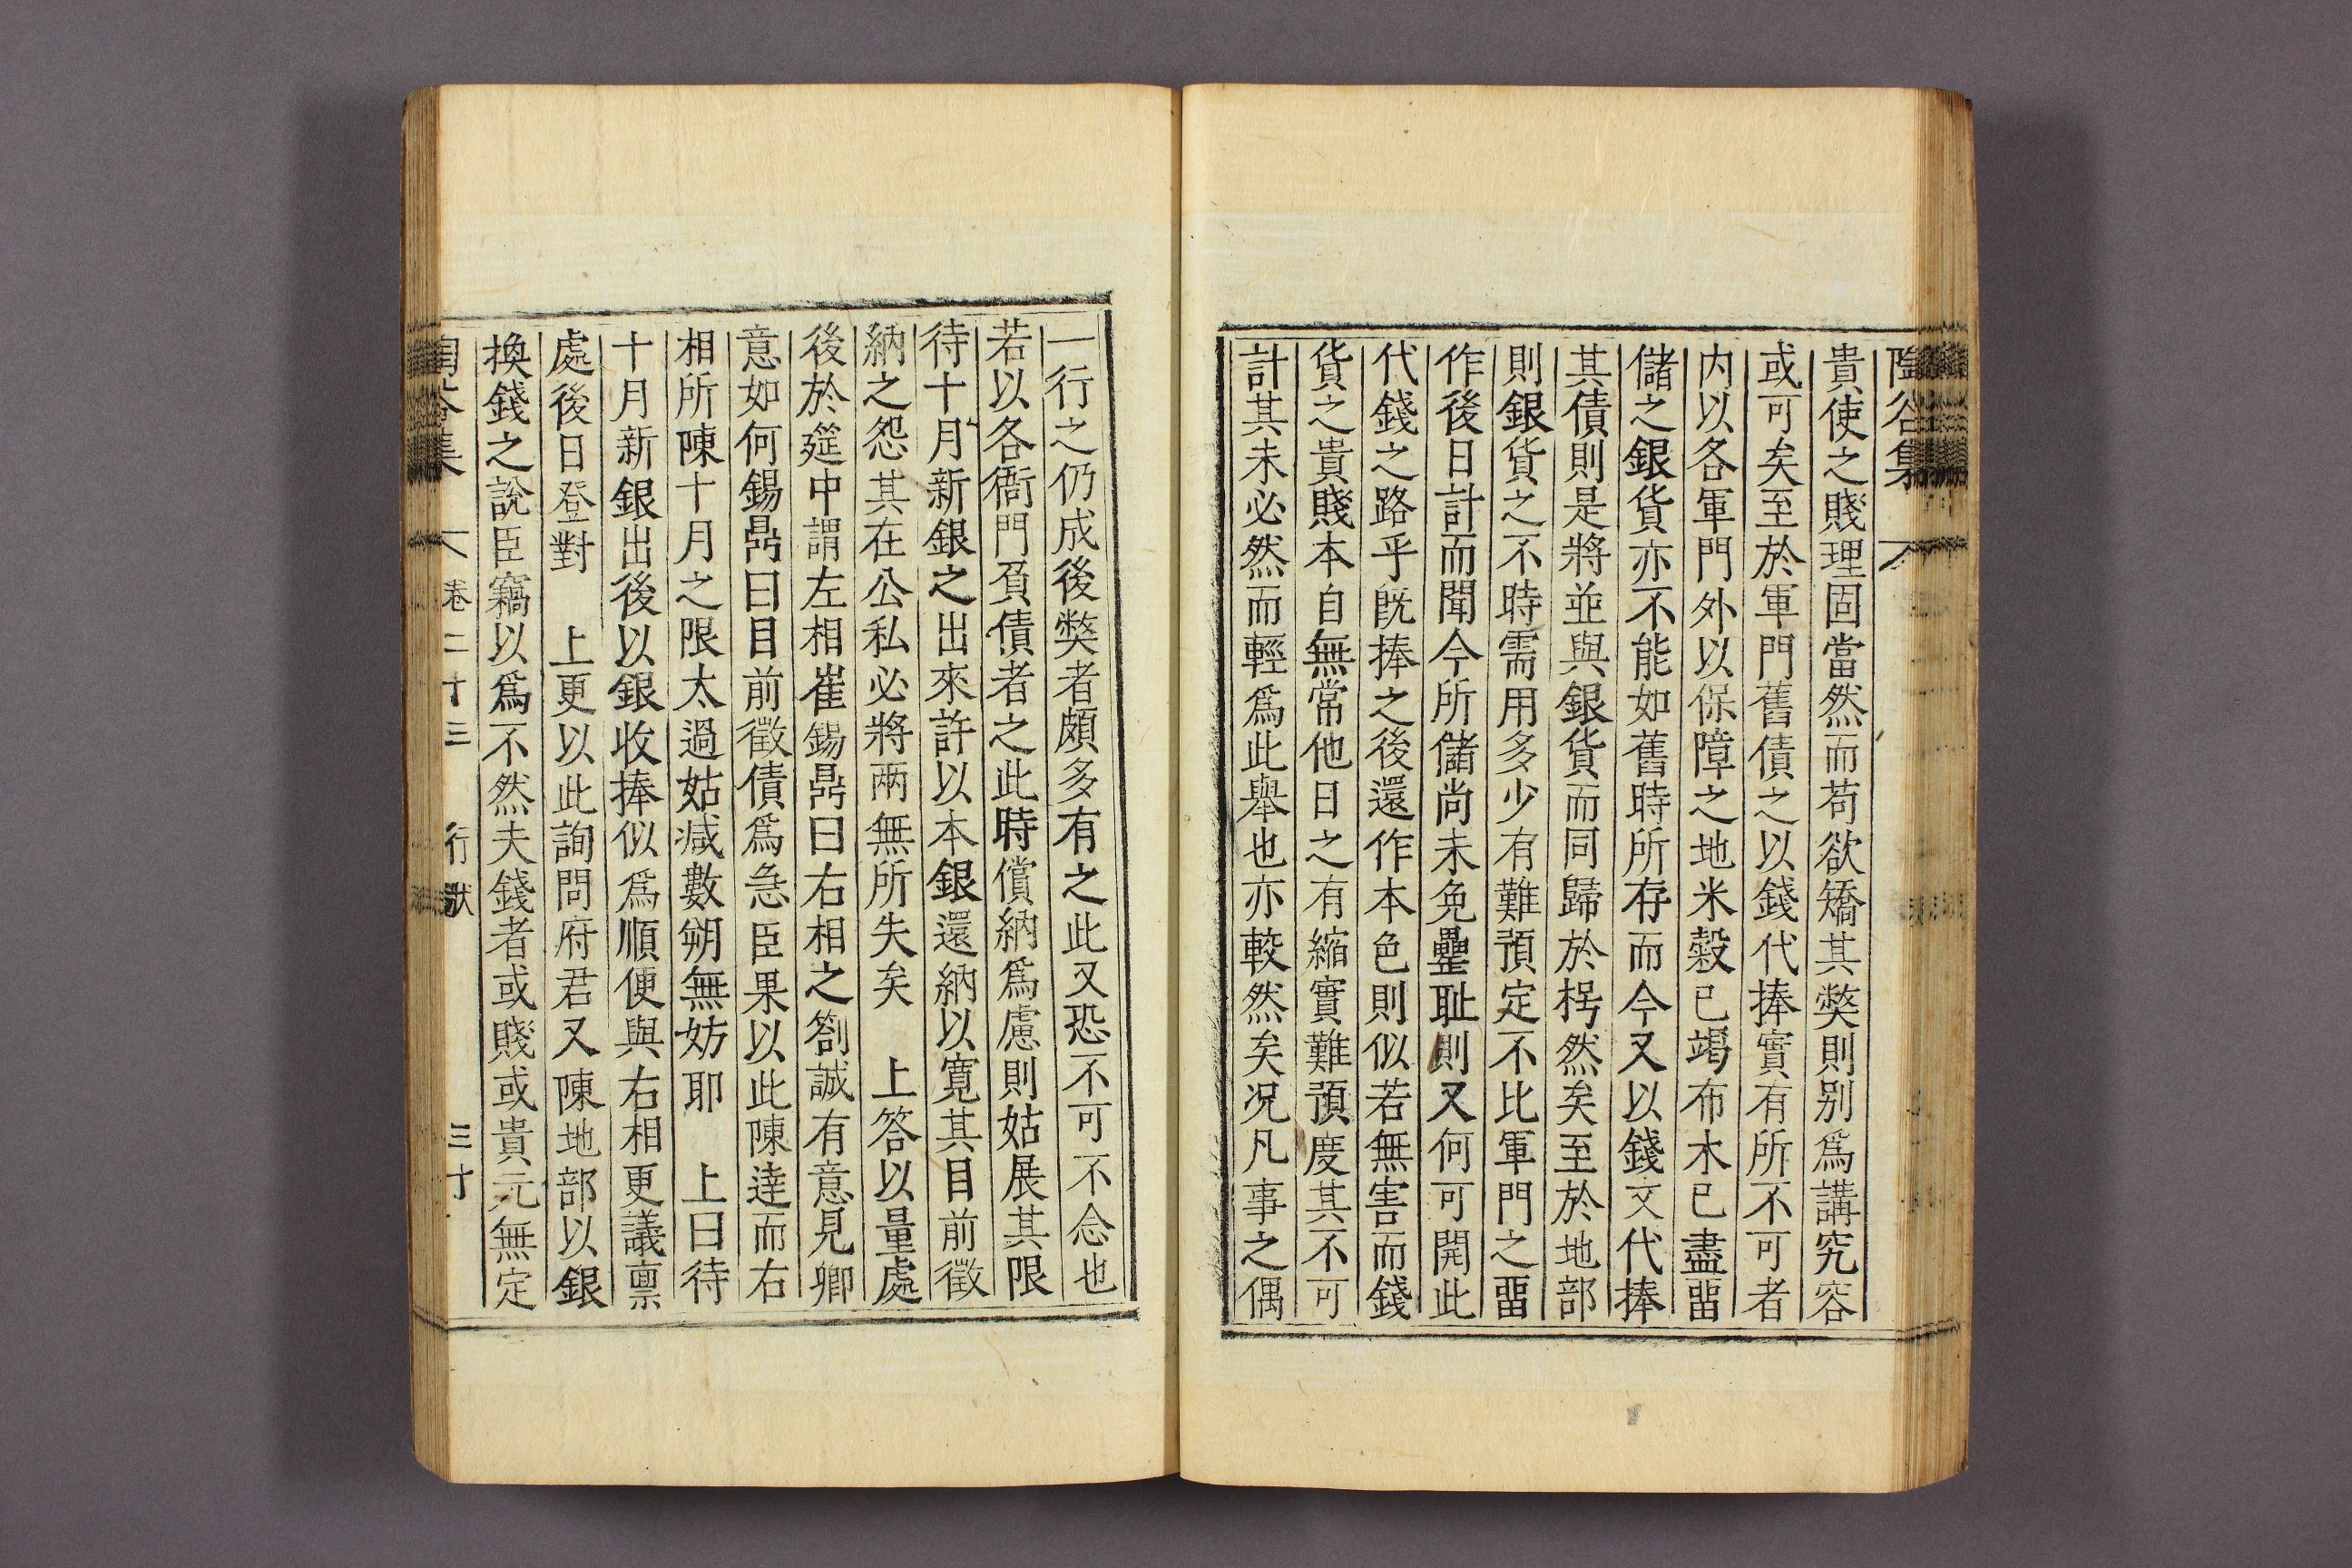 陶谷集
貴使之賤理固當然而苟欲矯其獘則别爲講究容
或可矣至於軍門舊債之以錢代捧實有所不可者
内以各軍門外以保障之地米糓已竭布木已盡畱
儲之銀貨亦不能如舊時所存而今又以錢文代捧
其債則是將並與銀貨而同歸於枵然矣至於地部
則銀貨之不時需用多少有難預定不比軍門之畱
作後日計而聞今所儲尚未免罍耻則又何可開此
代錢之路乎旣捧之後還作本色則似若無害而錢
貨之貴賤本自無常他日之有縮實難預度其不可
計其未必然而輕爲此舉也亦較然矣况凡事之偶
一行之仍成後獘者頗多有之此又恐不可不念也
若以各衙門負債者之此時償納爲慮則姑展其限
待十月新銀之出來許以本銀還納以寬其目前徵
納之怨其在公私必將兩無所失矣　上答以量處
後於筵中謂左相崔錫鼎曰右相之劄誠有意見卿
意如何錫鼎曰目前徵債爲急臣果以此陳達而右
相所陳十月之限太過姑减數朔無妨耶　上曰待
十月新銀出後以銀收捧似爲順便與右相更議禀
處後日登對　上更以此詢問府君又陳地部以銀
換錢之說臣竊以爲不然夫錢者或賤或貴元無定
陶谷集　卷二十三　行狀　三十